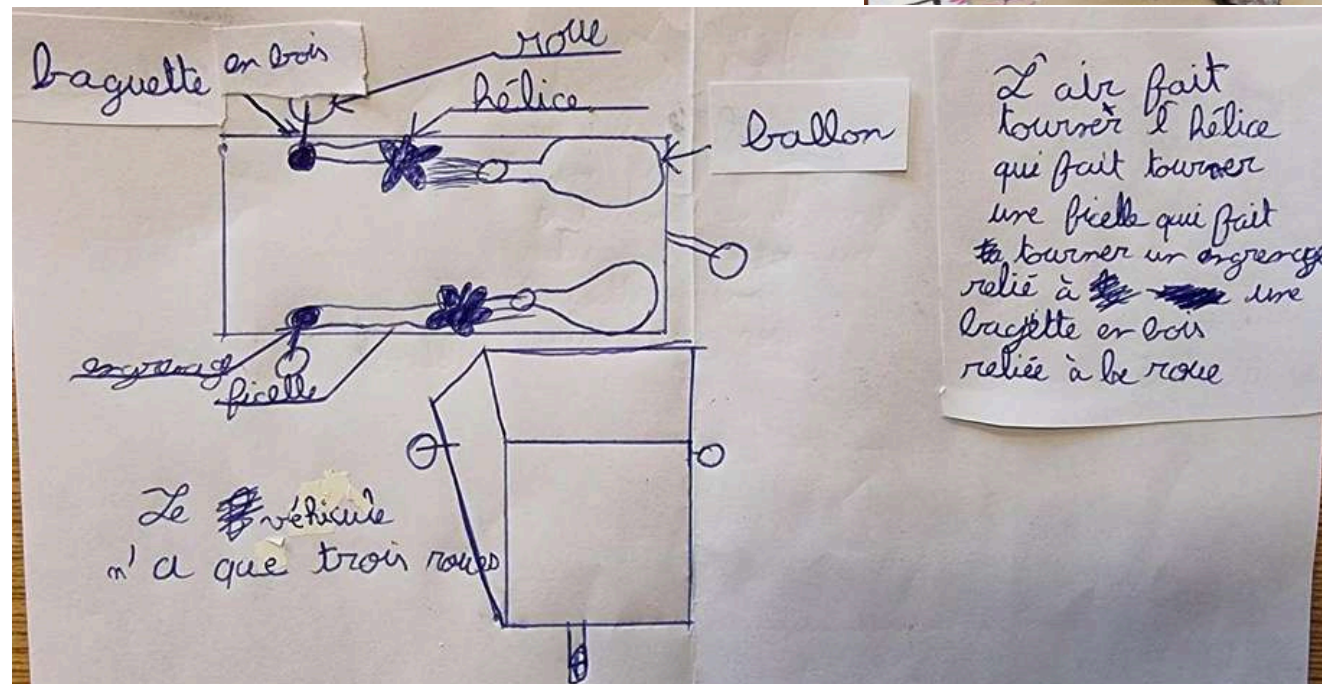 baguette en bois
roue
hélice
ballon
engrenage
ficelle
Le véhicule
n'a que trois roues
L'air fait
tourner l'hélice
qui fait tourner
une ficelle qui fait
tourner un engrenage
relié à une
bagette en bois
reliée à la roue